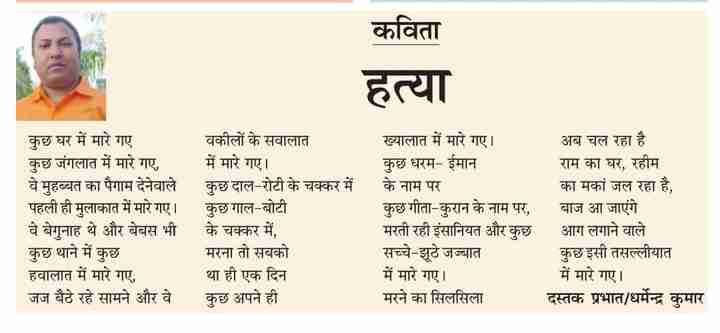 कविता
हत्या
कुछ घर में मारे गए
कुछ जंगलात में मारे गए,
वे मुहब्बत का पैगाम देनेवाले
पहली ही मुलाकात में मारे गए।
वे बेगुनाह थे और बेबस भी
कुछ थाने में कुछ
हवालात में मारे गए,
जज बैठे रहे सामने और वे
वकीलों के सवालात
में मारे गए।
कुछ दाल-रोटी के चक्कर में
कुछ गाल-बोटी
के चक्कर में,
मरना तो सबको
था ही एक दिन
कुछ अपने ही
ख्यालात में मारे गए।
कुछ धरम- ईमान
के नाम पर
कुछ गीता-कुरान के नाम पर,
मरती रही इंसानियत और कुछ
सच्चे-झूठे जज्बात
में मारे गए।
मरने का सिलसिला
अब चल रहा है
राम का घर, रहीम
का मकां जल रहा है,
बाज आ जाएंगे
आग लगाने वाले
कुछ इसी तसल्लीयात
में मारे गए।
दस्तक प्रभात/धर्मेन्द्र कुमार